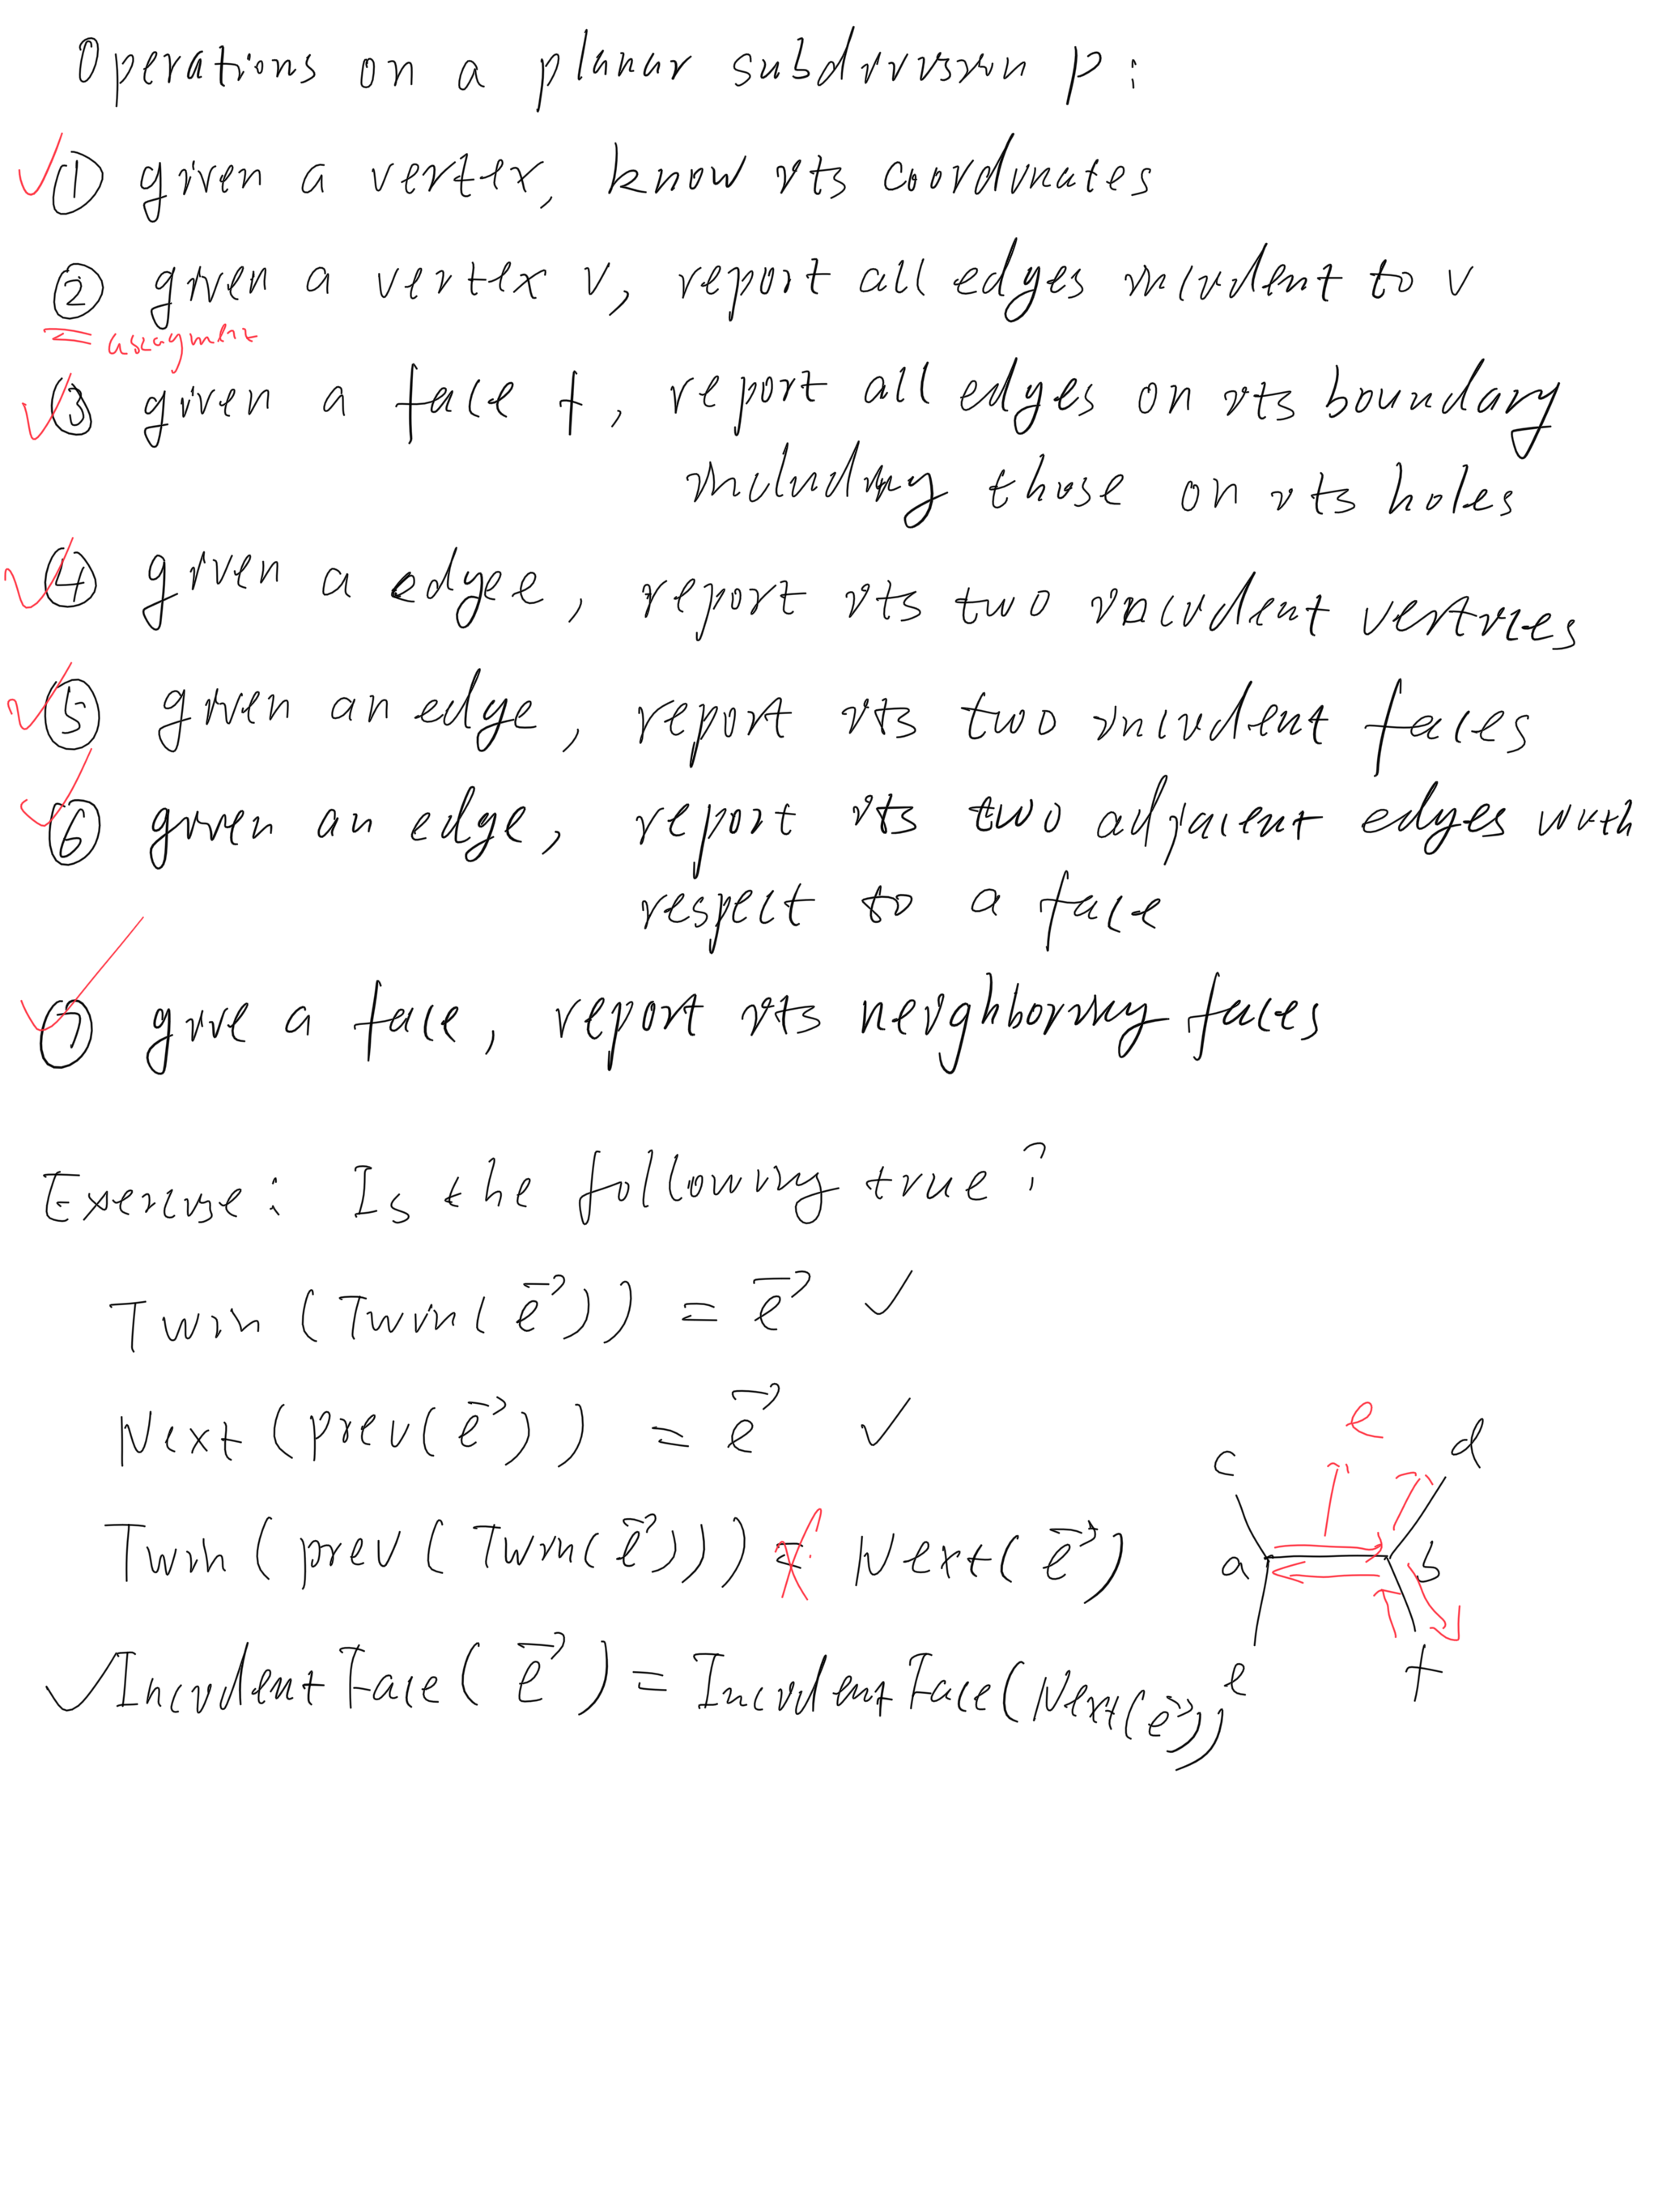 Operations on a planar subdivision P:
① given a vertex, know its coordinates
② given a vertex v, report all edges incident to v
assignment
③ given a face f, report all edges on its boundary
including those on its holes
④ given a edge e, report its two incident vertices
⑤ given an edge, report its two incident faces
⑥ given an edge, report its two adjacent edges with
respect to a face
⑦ give a face, report its neighboring faces
Exercise: Is the following true?
Twin (Twin(e⃗)) = e⃗ ✓
Next (prev(e⃗)) = e⃗ ✓
Twin (prev (Twin(e⃗))) ≠ Next(e⃗)
✓ Incident Face (e⃗) = Incident Face (Next(e⃗))
e
c d
a b
e f